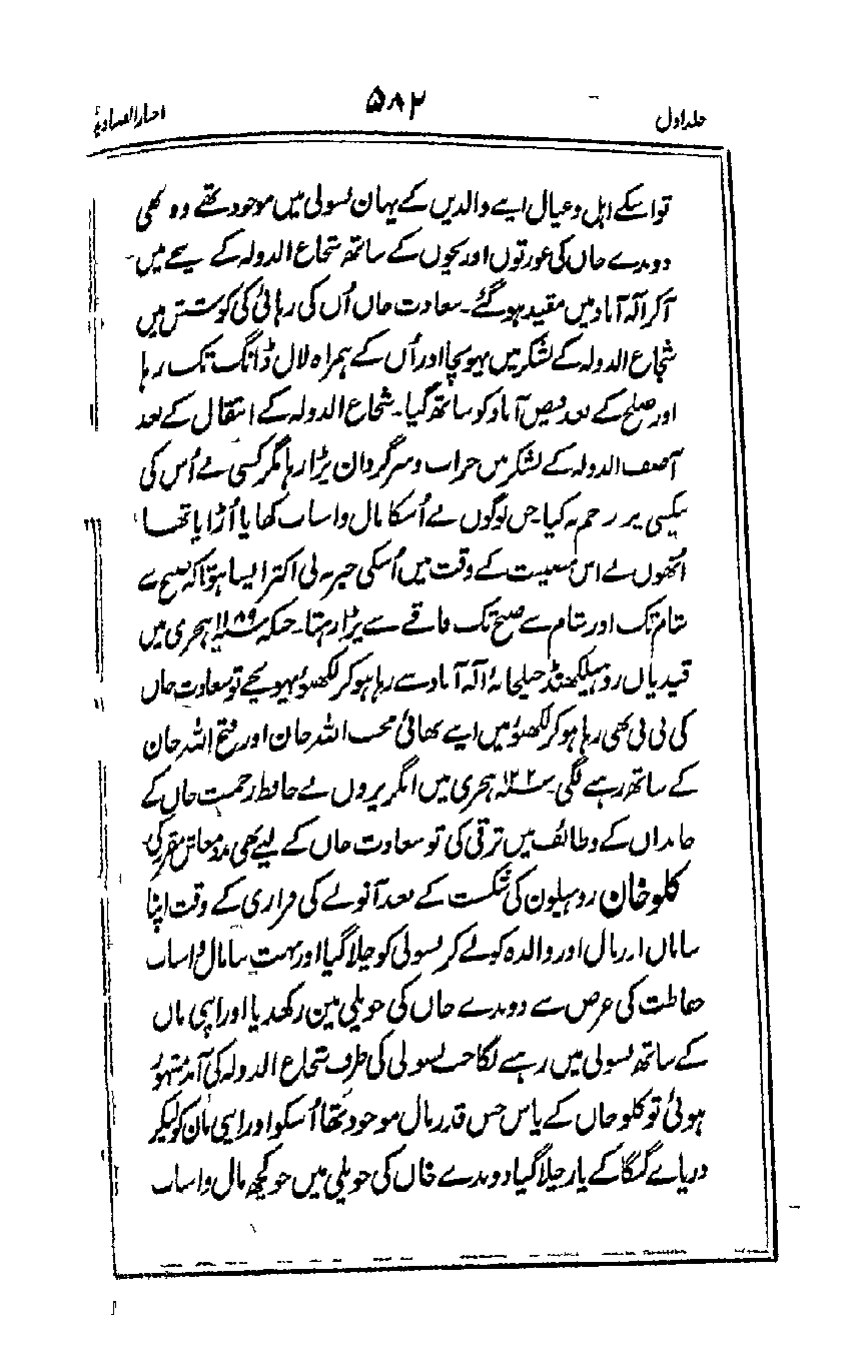 جلد اول ۵۸۲ اخبار الصنادید
تو اسکے اہل و عیال اپنے والدین کے یہان بسولی میں موجود تھے وہ بھی
دوندے خاں کی عورتوں اور بچوں کے ساتھ شجاع الدولہ کے پنجے میں
آکر الہ آباد میں مقید ہو گئے۔ سعادت خاں اُن کی رہائی کی کوشش میں
شجاع الدولہ کے لشکر میں پہونچا اور اُن کے ہمراہ لال ڈانگ تک رہا
اور صلح کے بعد فیض آباد کو ساتھ گیا۔ شجاع الدولہ کے انتقال کے بعد
آصف الدولہ کے لشکر میں خراب و سرگردان پڑا رہا مگر کسی نے اُس کی
بیکسی پر رحم نہ کیا جن لوگوں نے اُسکا مال و اسباب کھایا اُڑایا تھا
اُنھوں نے اس مصیبت کے وقت میں اُسکی خبر نہ لی اکثر ایسا ہوتا کہ صبح سے
شام تک اور شام سے صبح تک فاقے سے پڑا رہتا۔ جبکہ ۱۱۸۹ ہجری میں
قیدیاں روہیلکھنڈ جیلخانۂ الہ آباد سے رہا ہو کر لکھنؤ پہونچے تو سعادت خاں
کی بی بی بھی رہا ہو کر لکھنؤ میں اپنے بھائی محب اللہ خان اور فتح اللہ خان
کے ساتھ رہنے لگی۔ ۱۲۲۰ ہجری میں انگریزوں نے حافظ رحمت خاں کے
خاندان کے وظائف میں ترقی کی تو سعادت خاں کے لیے بھی مدد معاش مقرر کی
کلو خان روہیلون کی شکست کے بعد آنولے کی فراری کے وقت اپنا
سامان اور مال اور والدہ کو لے کر بسولی کو چلا گیا اور بہت سا مال و اسباب
حفاظت کی غرض سے دوندے خاں کی حویلی مین رکھدیا اور اپنی ماں
کے ساتھ بسولی میں رہنے لگا جب بسولی کی طرف شجاع الدولہ کی آمد مشہور
ہوئی تو کلو خاں کے پاس جس قدر مال موجود تھا اُسکو اور اپنی مان کو لیکر
دریاے گنگا کے پار چلا گیا دوندے خاں کی حویلی میں جو کچھ مال و اسباب